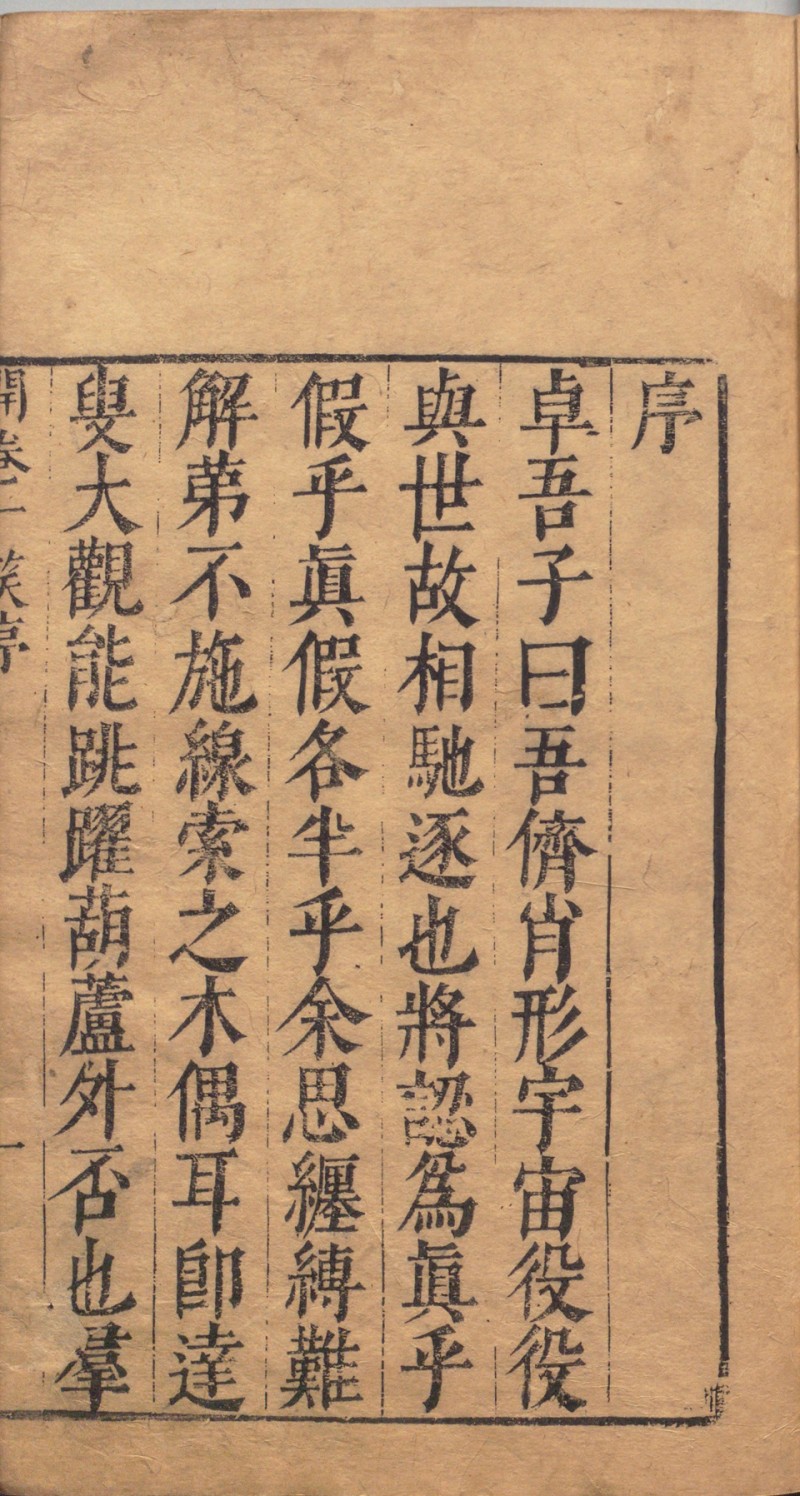 序
卓吾子曰吾儕肖形宇宙役役
與世故相馳逐也將認爲眞乎
假乎眞假各半乎余思纏縛難
解第不施線索之木偶耳卽達
叟大觀能跳躍葫蘆外否也羣
開卷一笑序 一